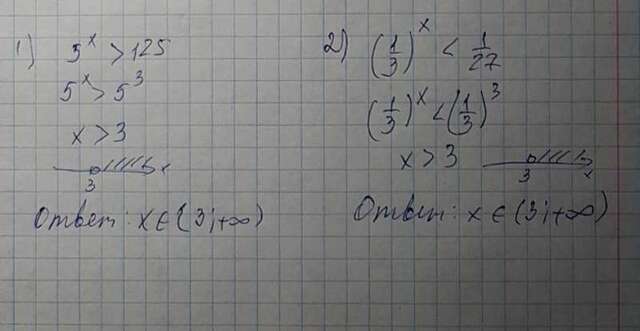 1) 5^x > 125
5^x > 5^3
x > 3
3 x
Ответ: x ∈ (3; +∞)
2) (1/3)^x < 1/27
(1/3)^x < (1/3)^3
x > 3
3 x
Ответ: x ∈ (3; +∞)